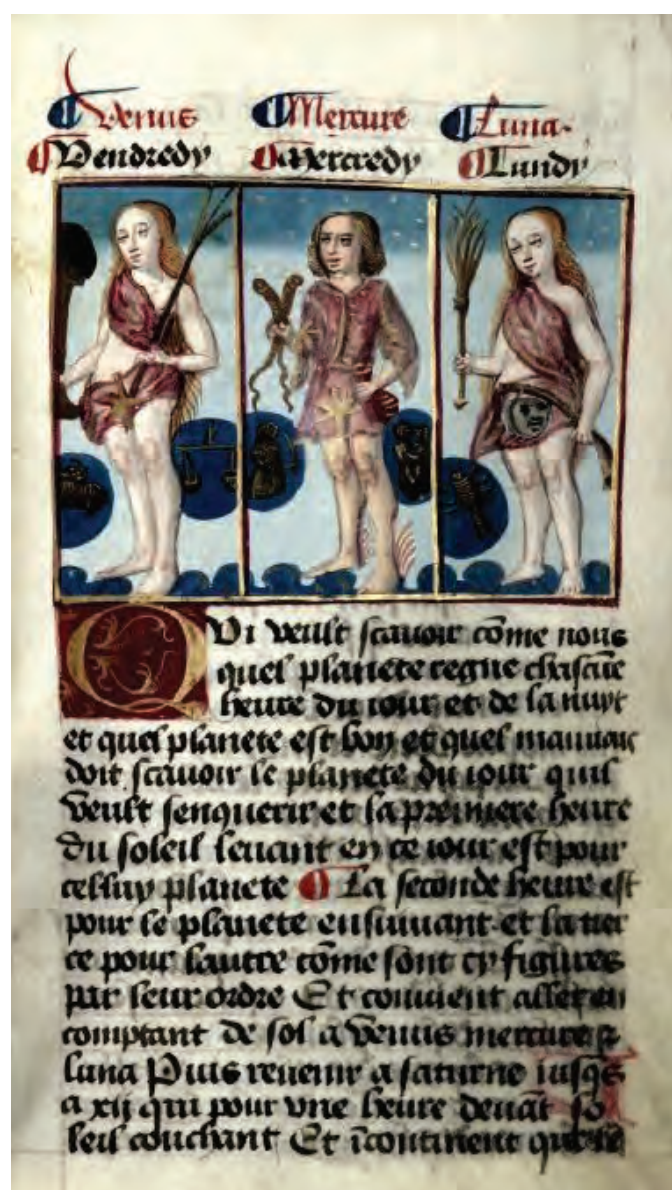 Venus Mercure Luna
Vendredy Mercredy Lundy
QVi veult scauoir cõme nous
quel planete regne chascũe
heure du iour et de la nuyt
et quel planete est bon et quel mauuais
doit scauoir le planete du iour quil
veult senquerir et la premiere heure
du soleil leuant en ce iour est pour
celluy planete ¶ La seconde heure est
pour le planete ensuiuant et la tier
ce pour lautre cõme sont cy figures
par leur ordre Et conuient aller en
comptant de sol a venus mercure &
luna Puis reuenir a saturne iusq̃s
a xij qui pour vne heure deuãt so
leil couchant Et ĩcontinent que le